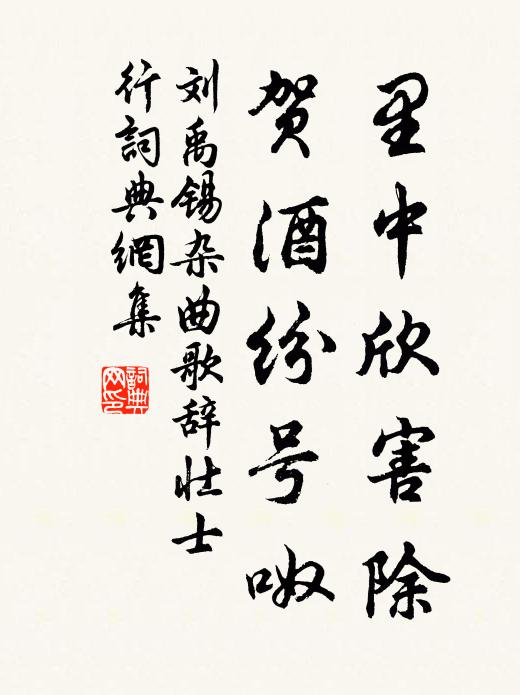 里中欣害除
贺酒纷号呶
刘禹锡杂曲歌辞壮士
行詞典網集
詞典
网印